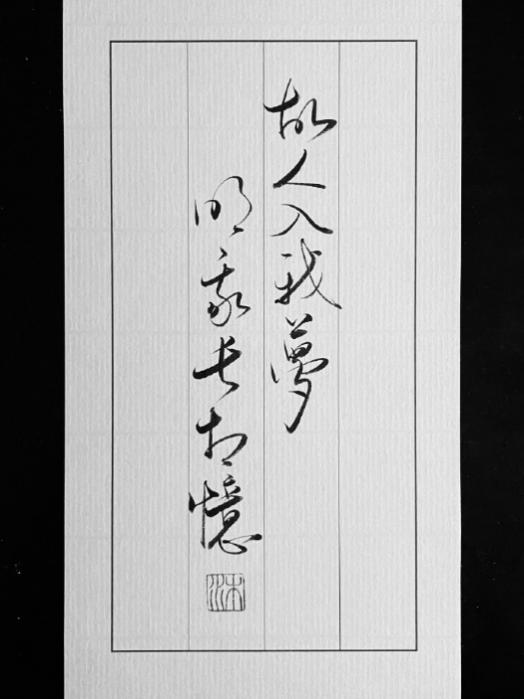 故人入我夢
明我長相憶